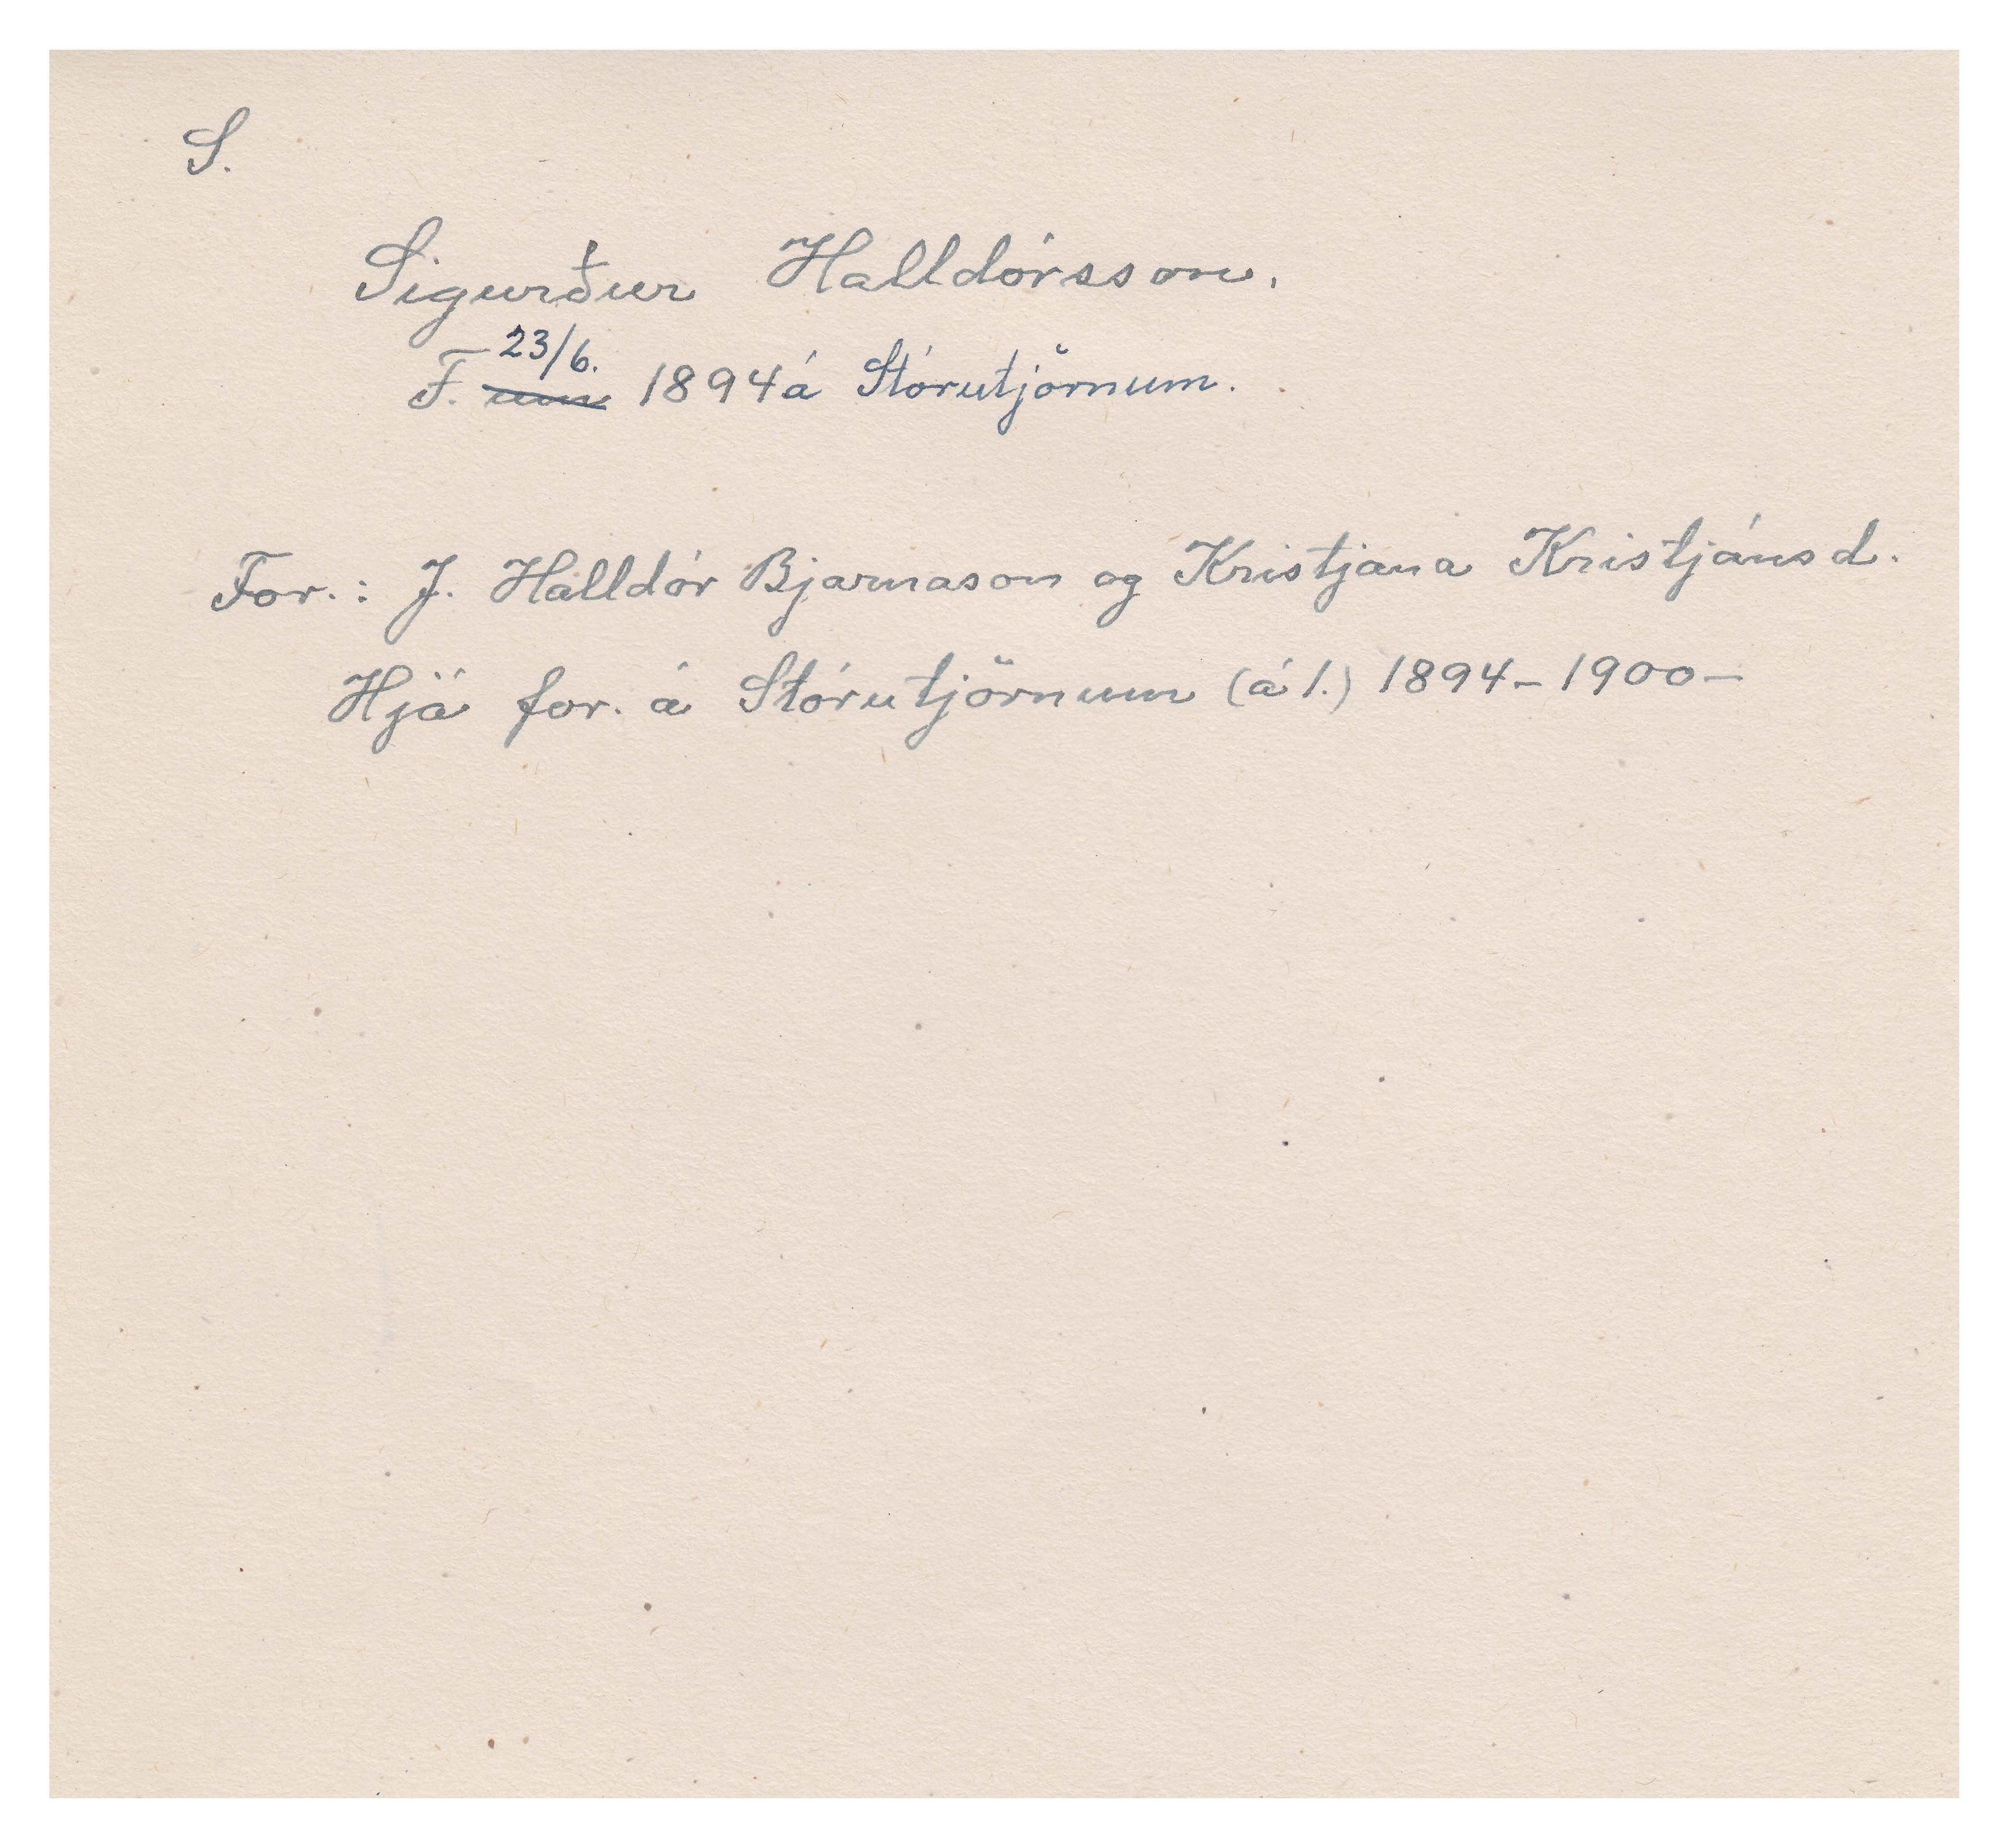 S.
Sigurður Halldórsson.
F. um 23/6. 1894 á Stórutjörnum.
For.: J. Halldór Bjarnason og Kristjana Kristjánsd.
Hjá for. á Stórutjörnum (á 1.) 1894-1900-